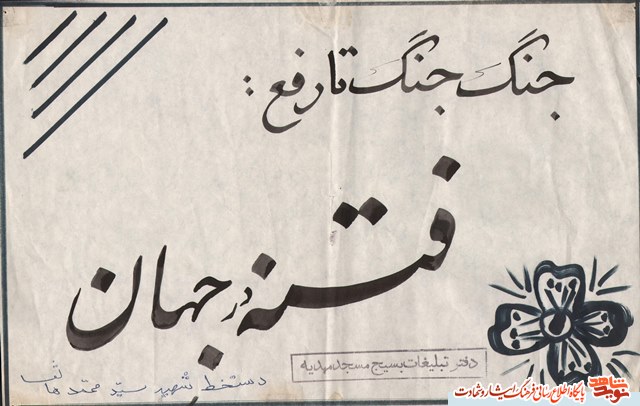 جنگ جنگ تا رفع :
فتنه در جهان
دفتر تبلیغات بسیج مسجد مهدیه
دستخط شهید سید محمد هاتف
نوید شاهد
پایگاه اطلاع رسانی فرهنگ ایثار و شهادت